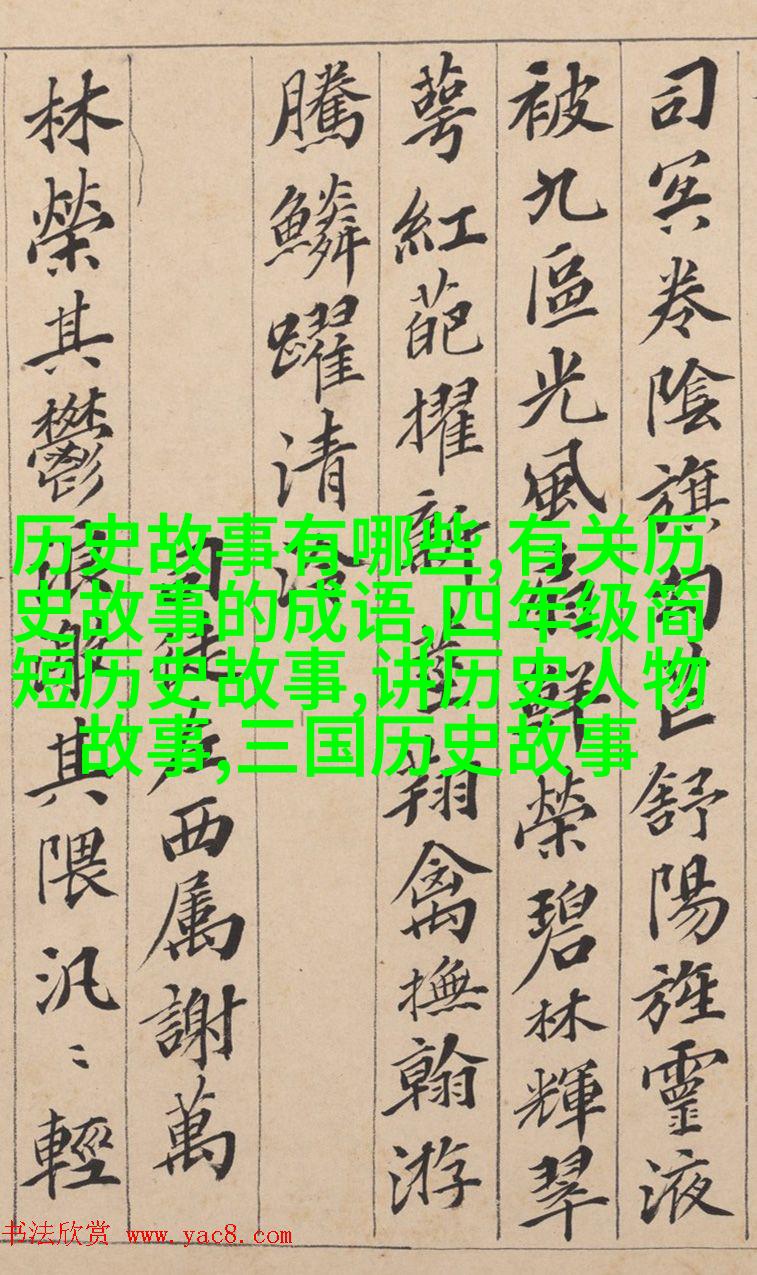 司冥卷陰旗句芒舒陽旌靈液
被九區光風扇鮮榮碧林輝翠
萼紅葩擢新莖翔禽撫翰游
騰鱗躍清泠
司徒左西属謝萬
林榮其鬱浪激其隈汎〻輕
历史故事有哪些,有关历
史故事的成语,四年级简
短历史故事,讲历史人物
故事,三国历史故事
书法欣赏 www.yac8.com